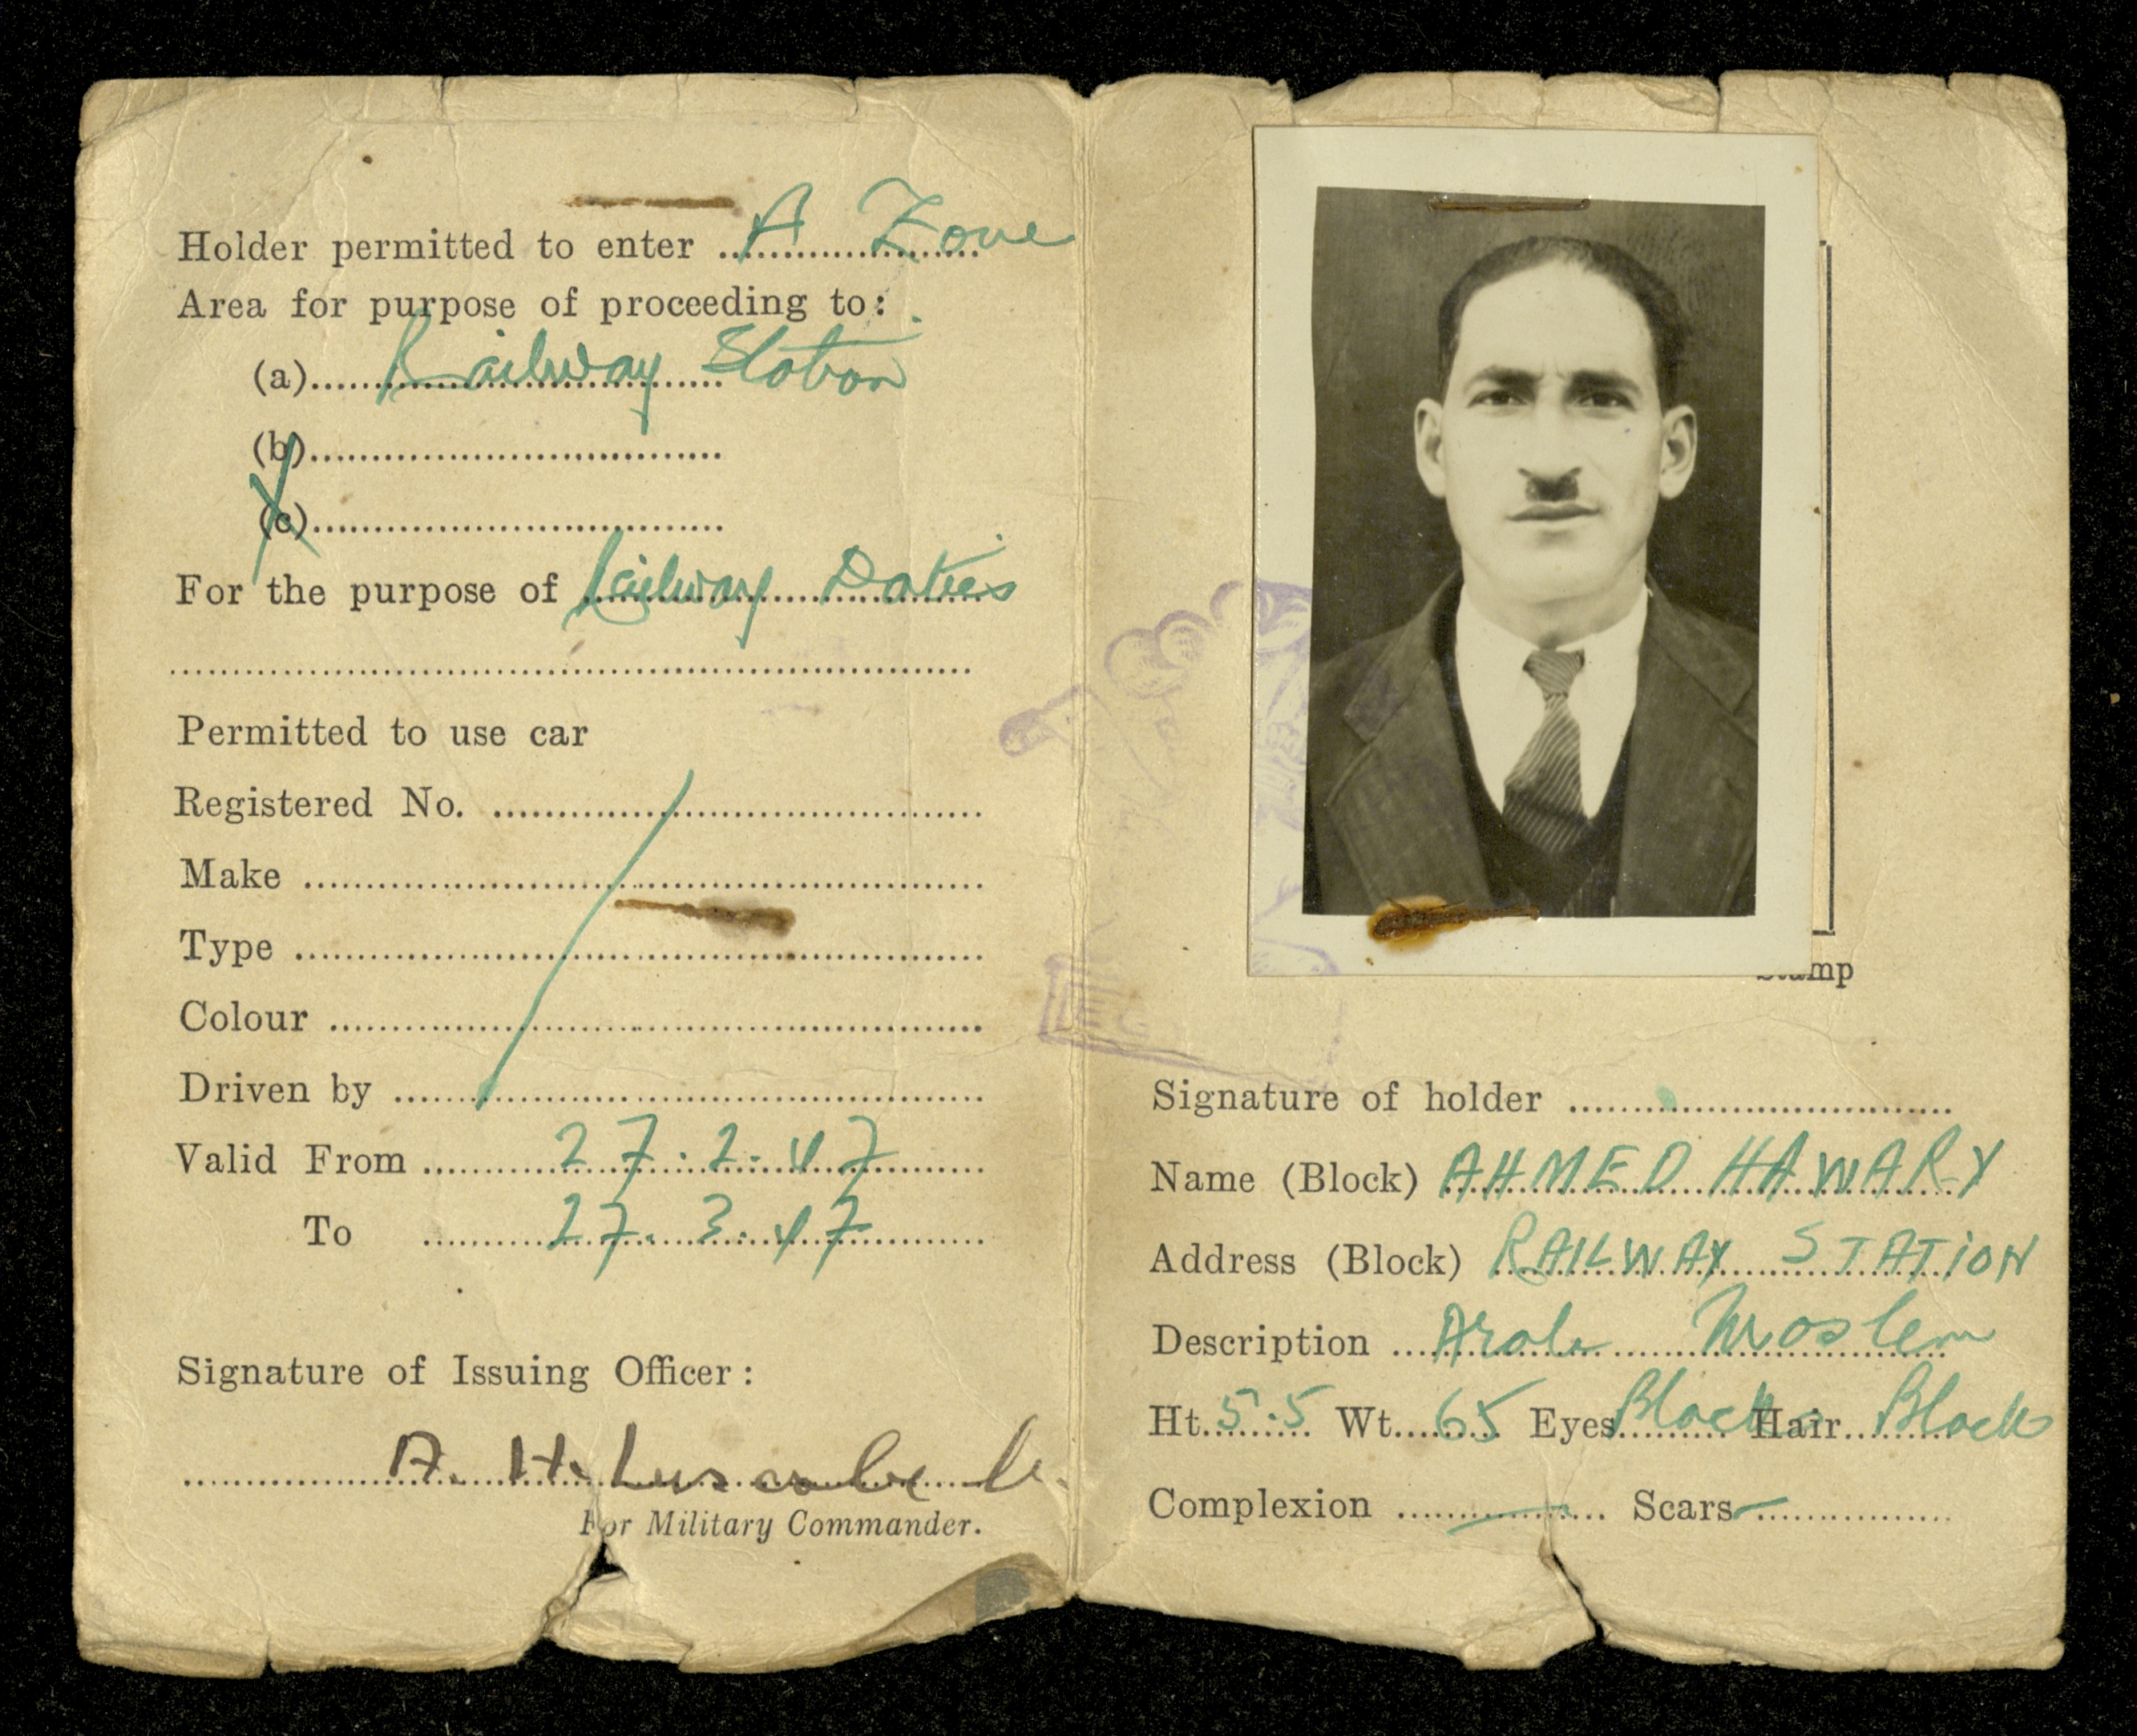 Holder permitted to enter A Zone
Area for purpose of proceeding to:
(a) Railway Station
(b)
(c)
For the purpose of Railway Duties
Permitted to use car
Registered No.
Make
Type
Colour
Driven by
Valid From 27.2.47
To 27.3.47
Signature of Issuing Officer:
A. H. Luscombe
For Military Commander.
Stamp
Signature of holder
Name (Block) AHMED HAWARY
Address (Block) RAILWAY STATION
Description Arab Moslem
Ht. 5.5 Wt. 65 Eyes Black Hair Black
Complexion — Scars —